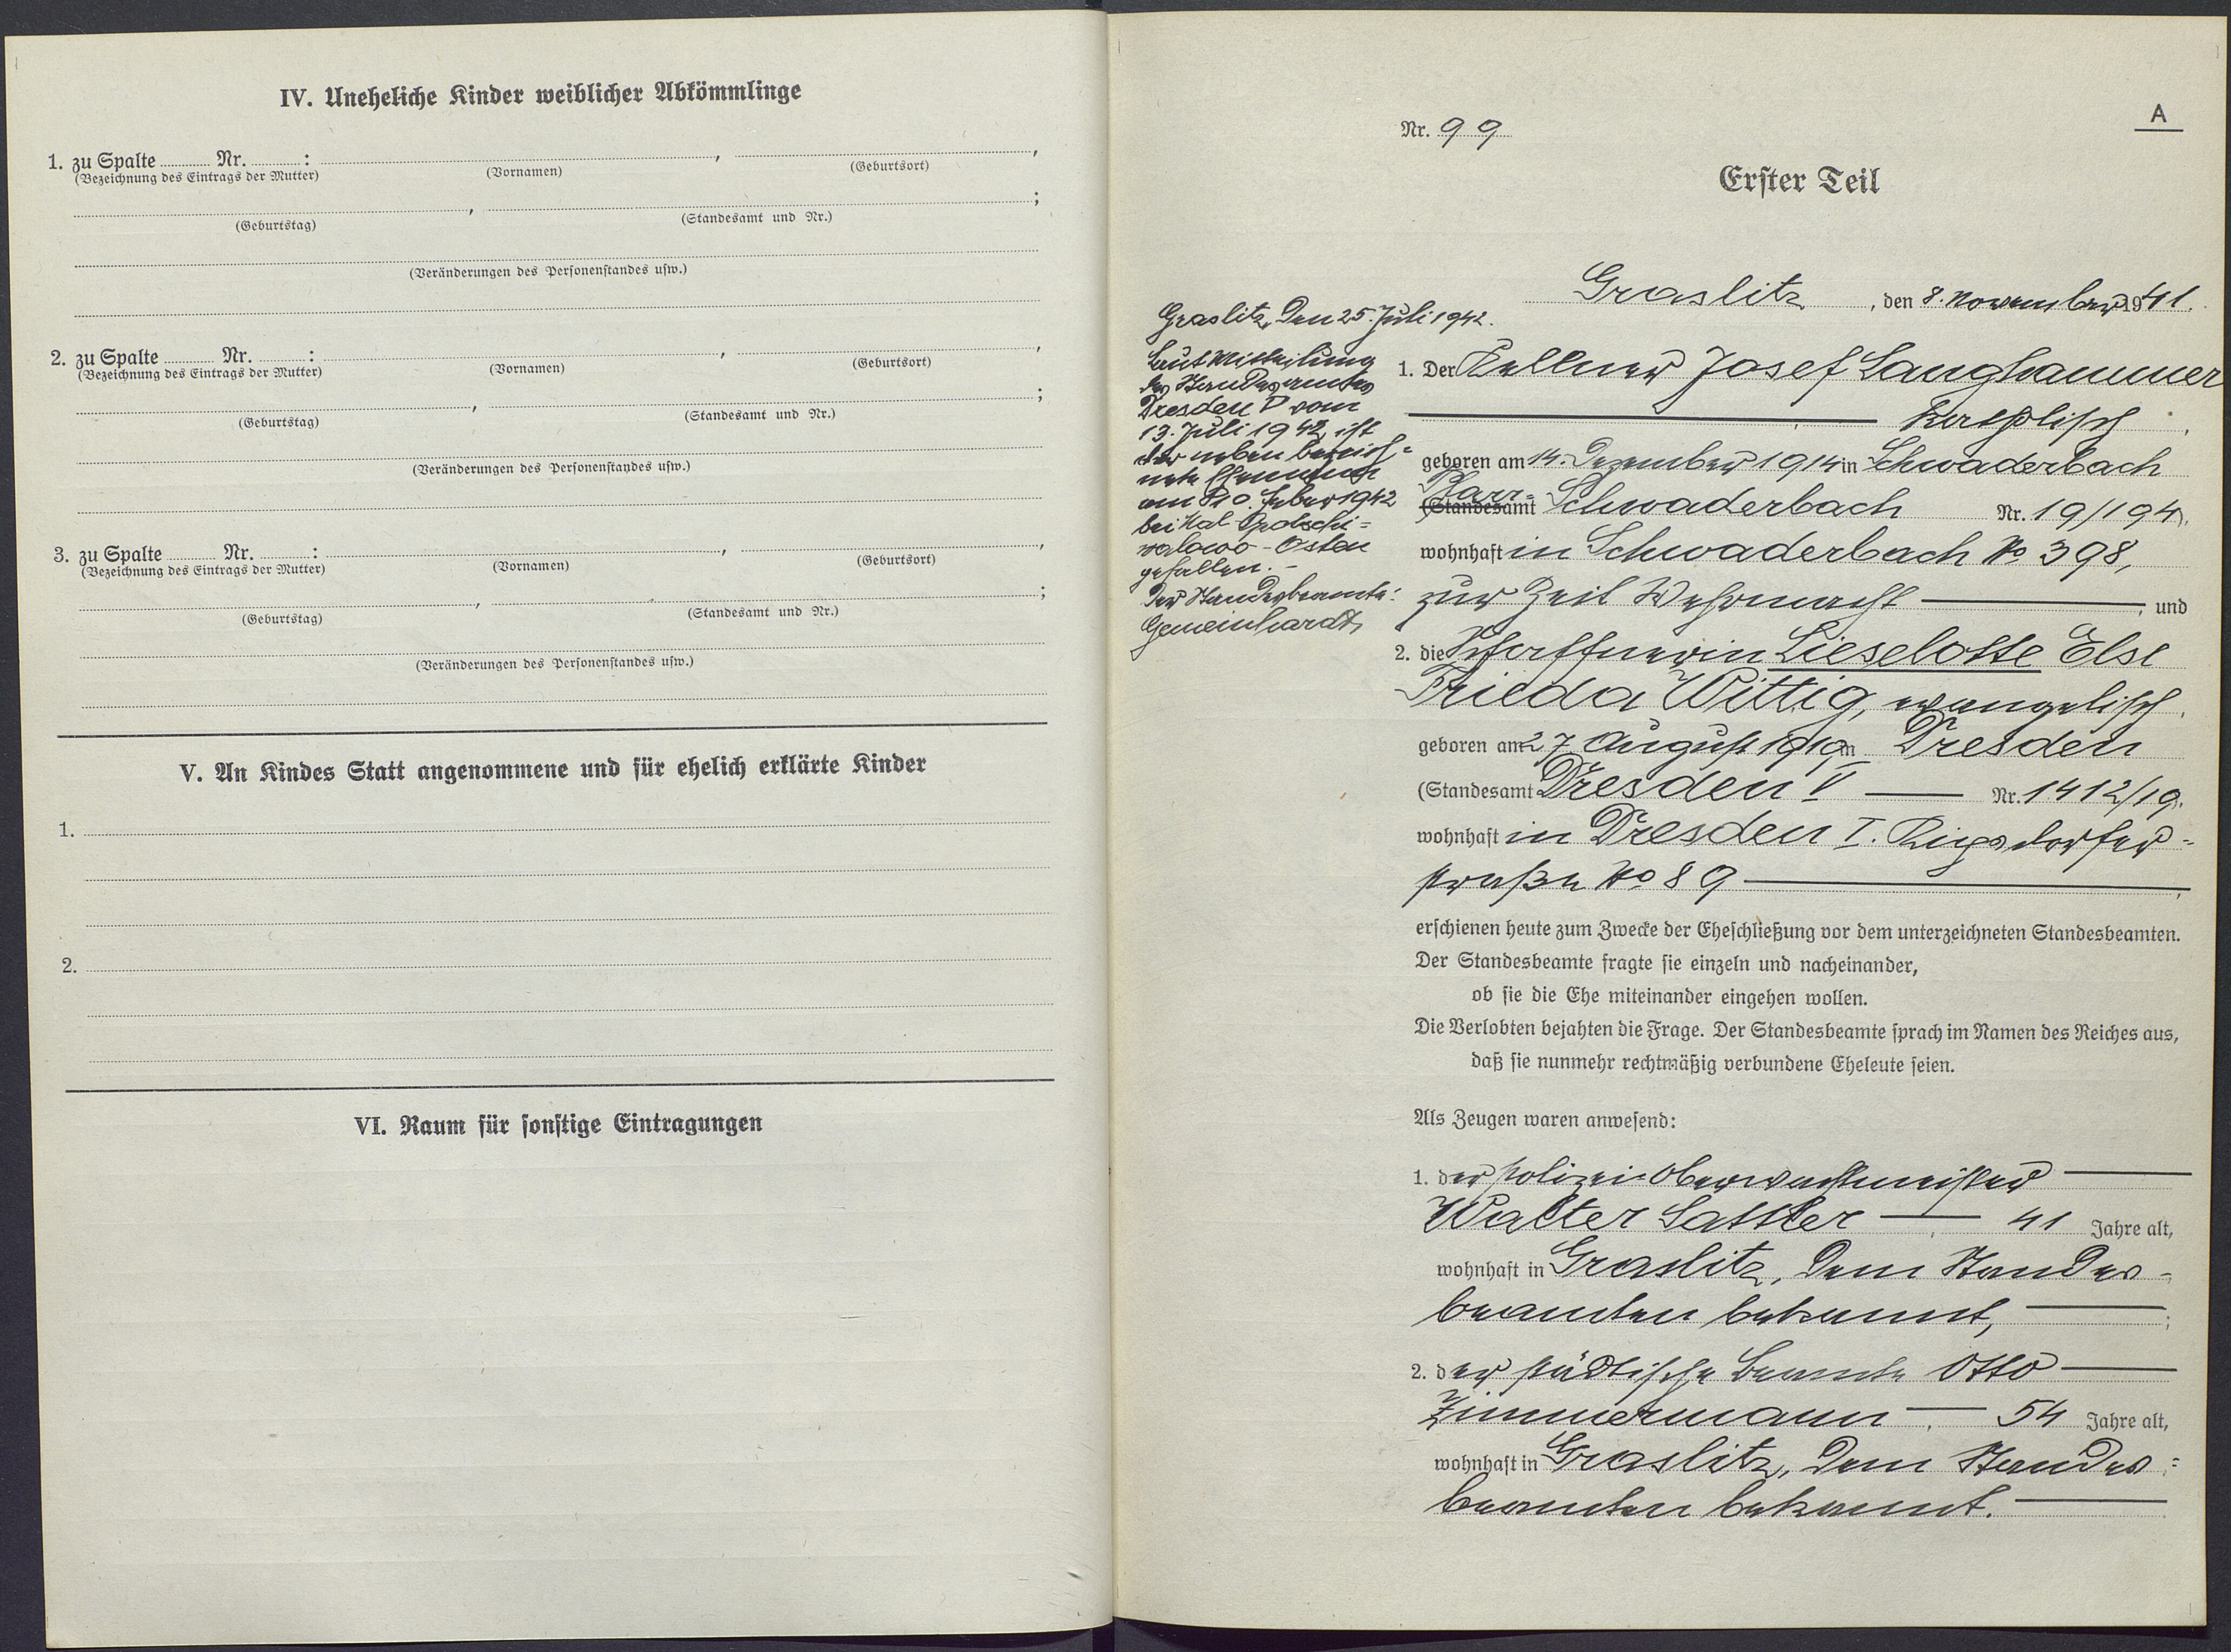 IV. Uneheliche Kinder weiblicher Abkömmlinge
1. zu Spalte ........ Nr. ........ :
(Bezeichnung des Eintrags der Mutter) (Vornamen) (Geburtsort)
(Geburtstag) (Standesamt und Nr.)
(Veränderungen des Personenstandes usw.)
2. zu Spalte ........ Nr. ........ :
(Bezeichnung des Eintrags der Mutter) (Vornamen) (Geburtsort)
(Geburtstag) (Standesamt und Nr.)
(Veränderungen des Personenstandes usw.)
3. zu Spalte ........ Nr. ........ :
(Bezeichnung des Eintrags der Mutter) (Vornamen) (Geburtsort)
(Geburtstag) (Standesamt und Nr.)
(Veränderungen des Personenstandes usw.)
V. An Kindes Statt angenommene und für ehelich erklärte Kinder
1.
2.
VI. Raum für sonstige Eintragungen
A
Nr. 99
Erster Teil
Graslitz, den 8. November 1941.
Graslitz, den 25. Juli 1942.
Laut Mitteilung
des Standesamtes
Dresden V vom
13. Juli 1942 ist
der neben bezeich=
nete Ehemann
am 10. Feber 1942
bei
- Osten
gefallen. -
Der Standesbeamte:
Gemeinhardt
1. Der Kellner Josef Langhammer
katholisch,
geboren am 14. Dezember 1914 in Schwaderbach
Pfarr=
(Standesamt Schwaderbach Nr. 19/194),
wohnhaft in Schwaderbach No 398,
zur Zeit Wehrmacht, und
2. die Schaffnerin Lieselotte Else
Frieda Wittig, evangelisch,
geboren am 27. August 1919 in Dresden
(Standesamt Dresden V Nr. 1412/19),
wohnhaft in Dresden I.
straße No 89
erschienen heute zum Zwecke der Eheschließung vor dem unterzeichneten Standesbeamten.
Der Standesbeamte fragte sie einzeln und nacheinander,
ob sie die Ehe miteinander eingehen wollen.
Die Verlobten bejahten die Frage. Der Standesbeamte sprach im Namen des Reiches aus,
daß sie nunmehr rechtmäßig verbundene Eheleute seien.
Als Zeugen waren anwesend:
1. der Polizei-Oberwachtmeister
Walter Sattler, 41 Jahre alt,
wohnhaft in Graslitz, dem Standes=
beamten bekannt, ;
2. der städtische Beamte Otto
Zimmermann, 54 Jahre alt,
wohnhaft in Graslitz, dem Standes=
beamten bekannt.